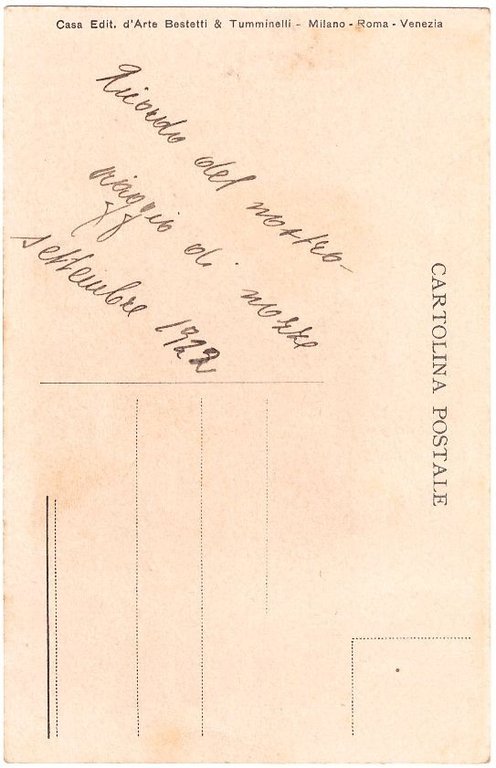 Casa Edit. d'Arte Bestetti & Tumminelli - Milano - Roma - Venezia
Ricordo del nostro
viaggio di nozze
settembre 1922
CARTOLINA POSTALE